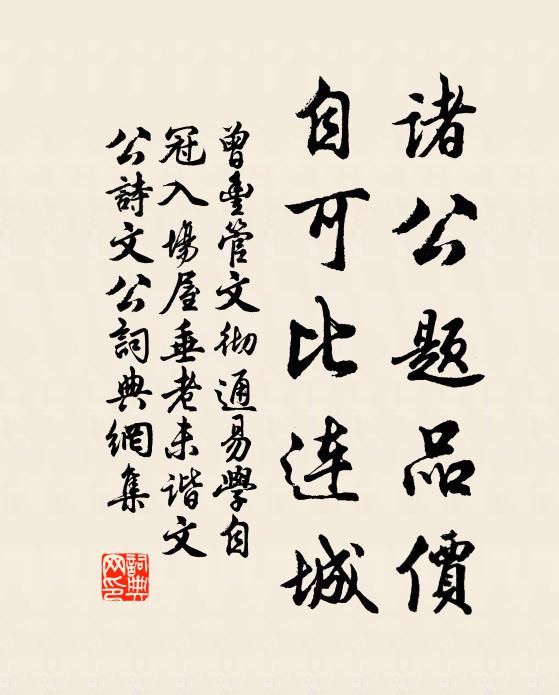 诸公题品價
自可比连城
曾豐管文彻通易學自
冠入場屋垂老未谐文
公詩文公詞典網集
詞典网印